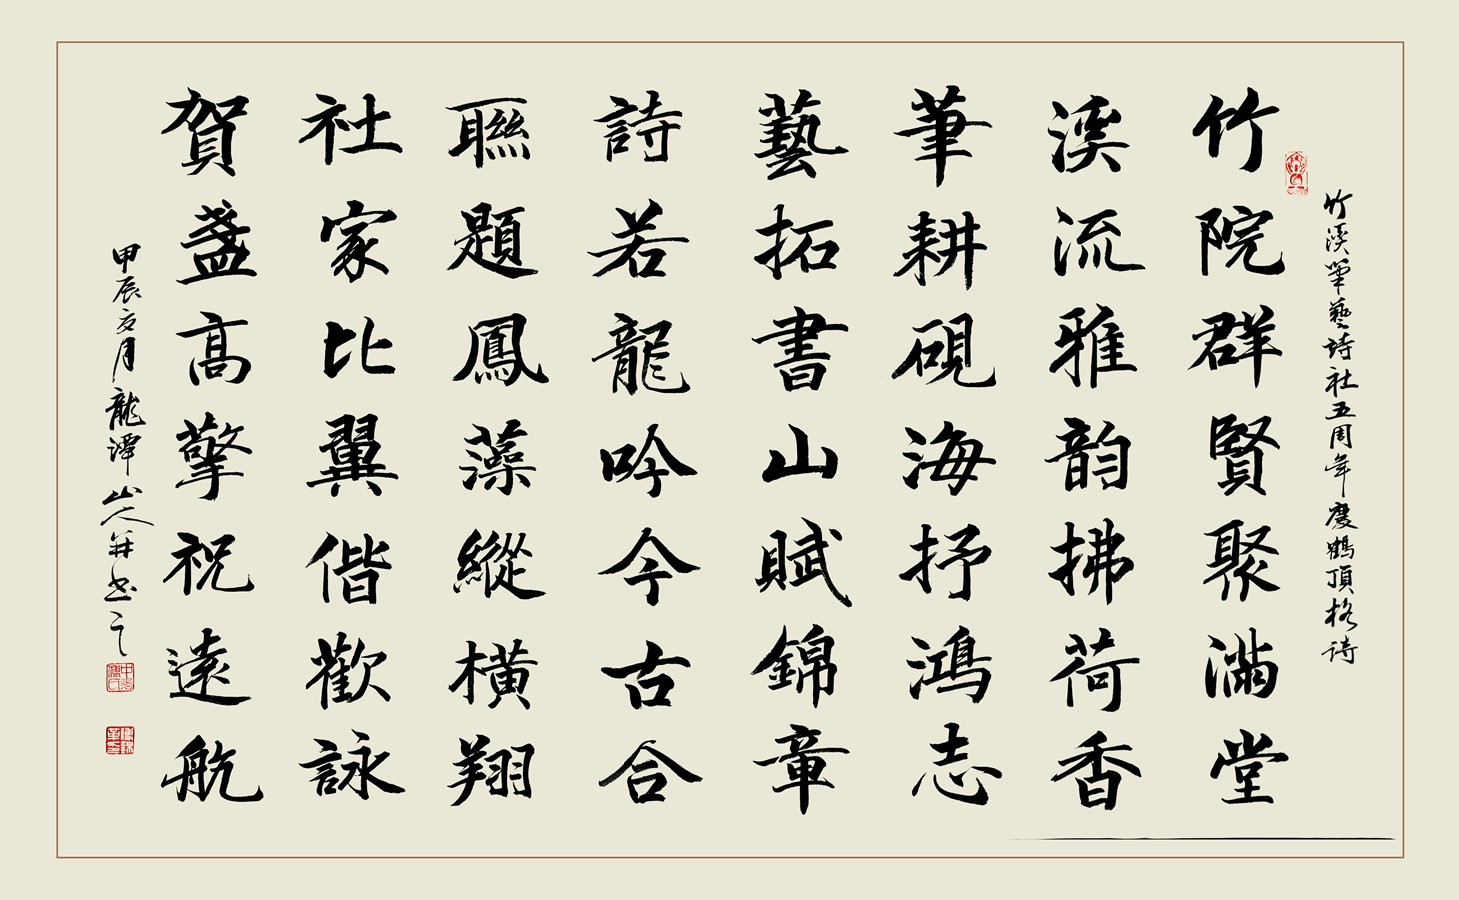 竹溪筆藝詩社五周年慶鶴頂格詩
竹院群賢聚滿堂
溪流雅韵拂荷香
筆耕硯海抒鴻志
藝拓書山賦錦章
詩若龍吟今古合
聯題鳳藻縱橫翔
社家比翼偕歡詠
賀盞高擎祝遠航
甲辰亥月龍潭山人并书之